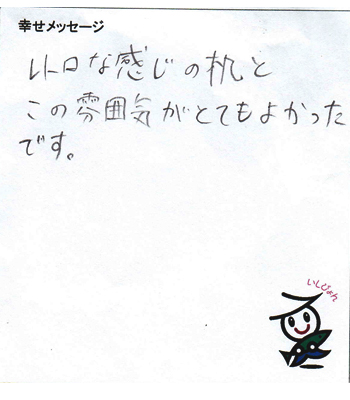 幸せメッセージ
レトロな感じの机と
この雰囲気がとてもよかった
です。
いしぴょん